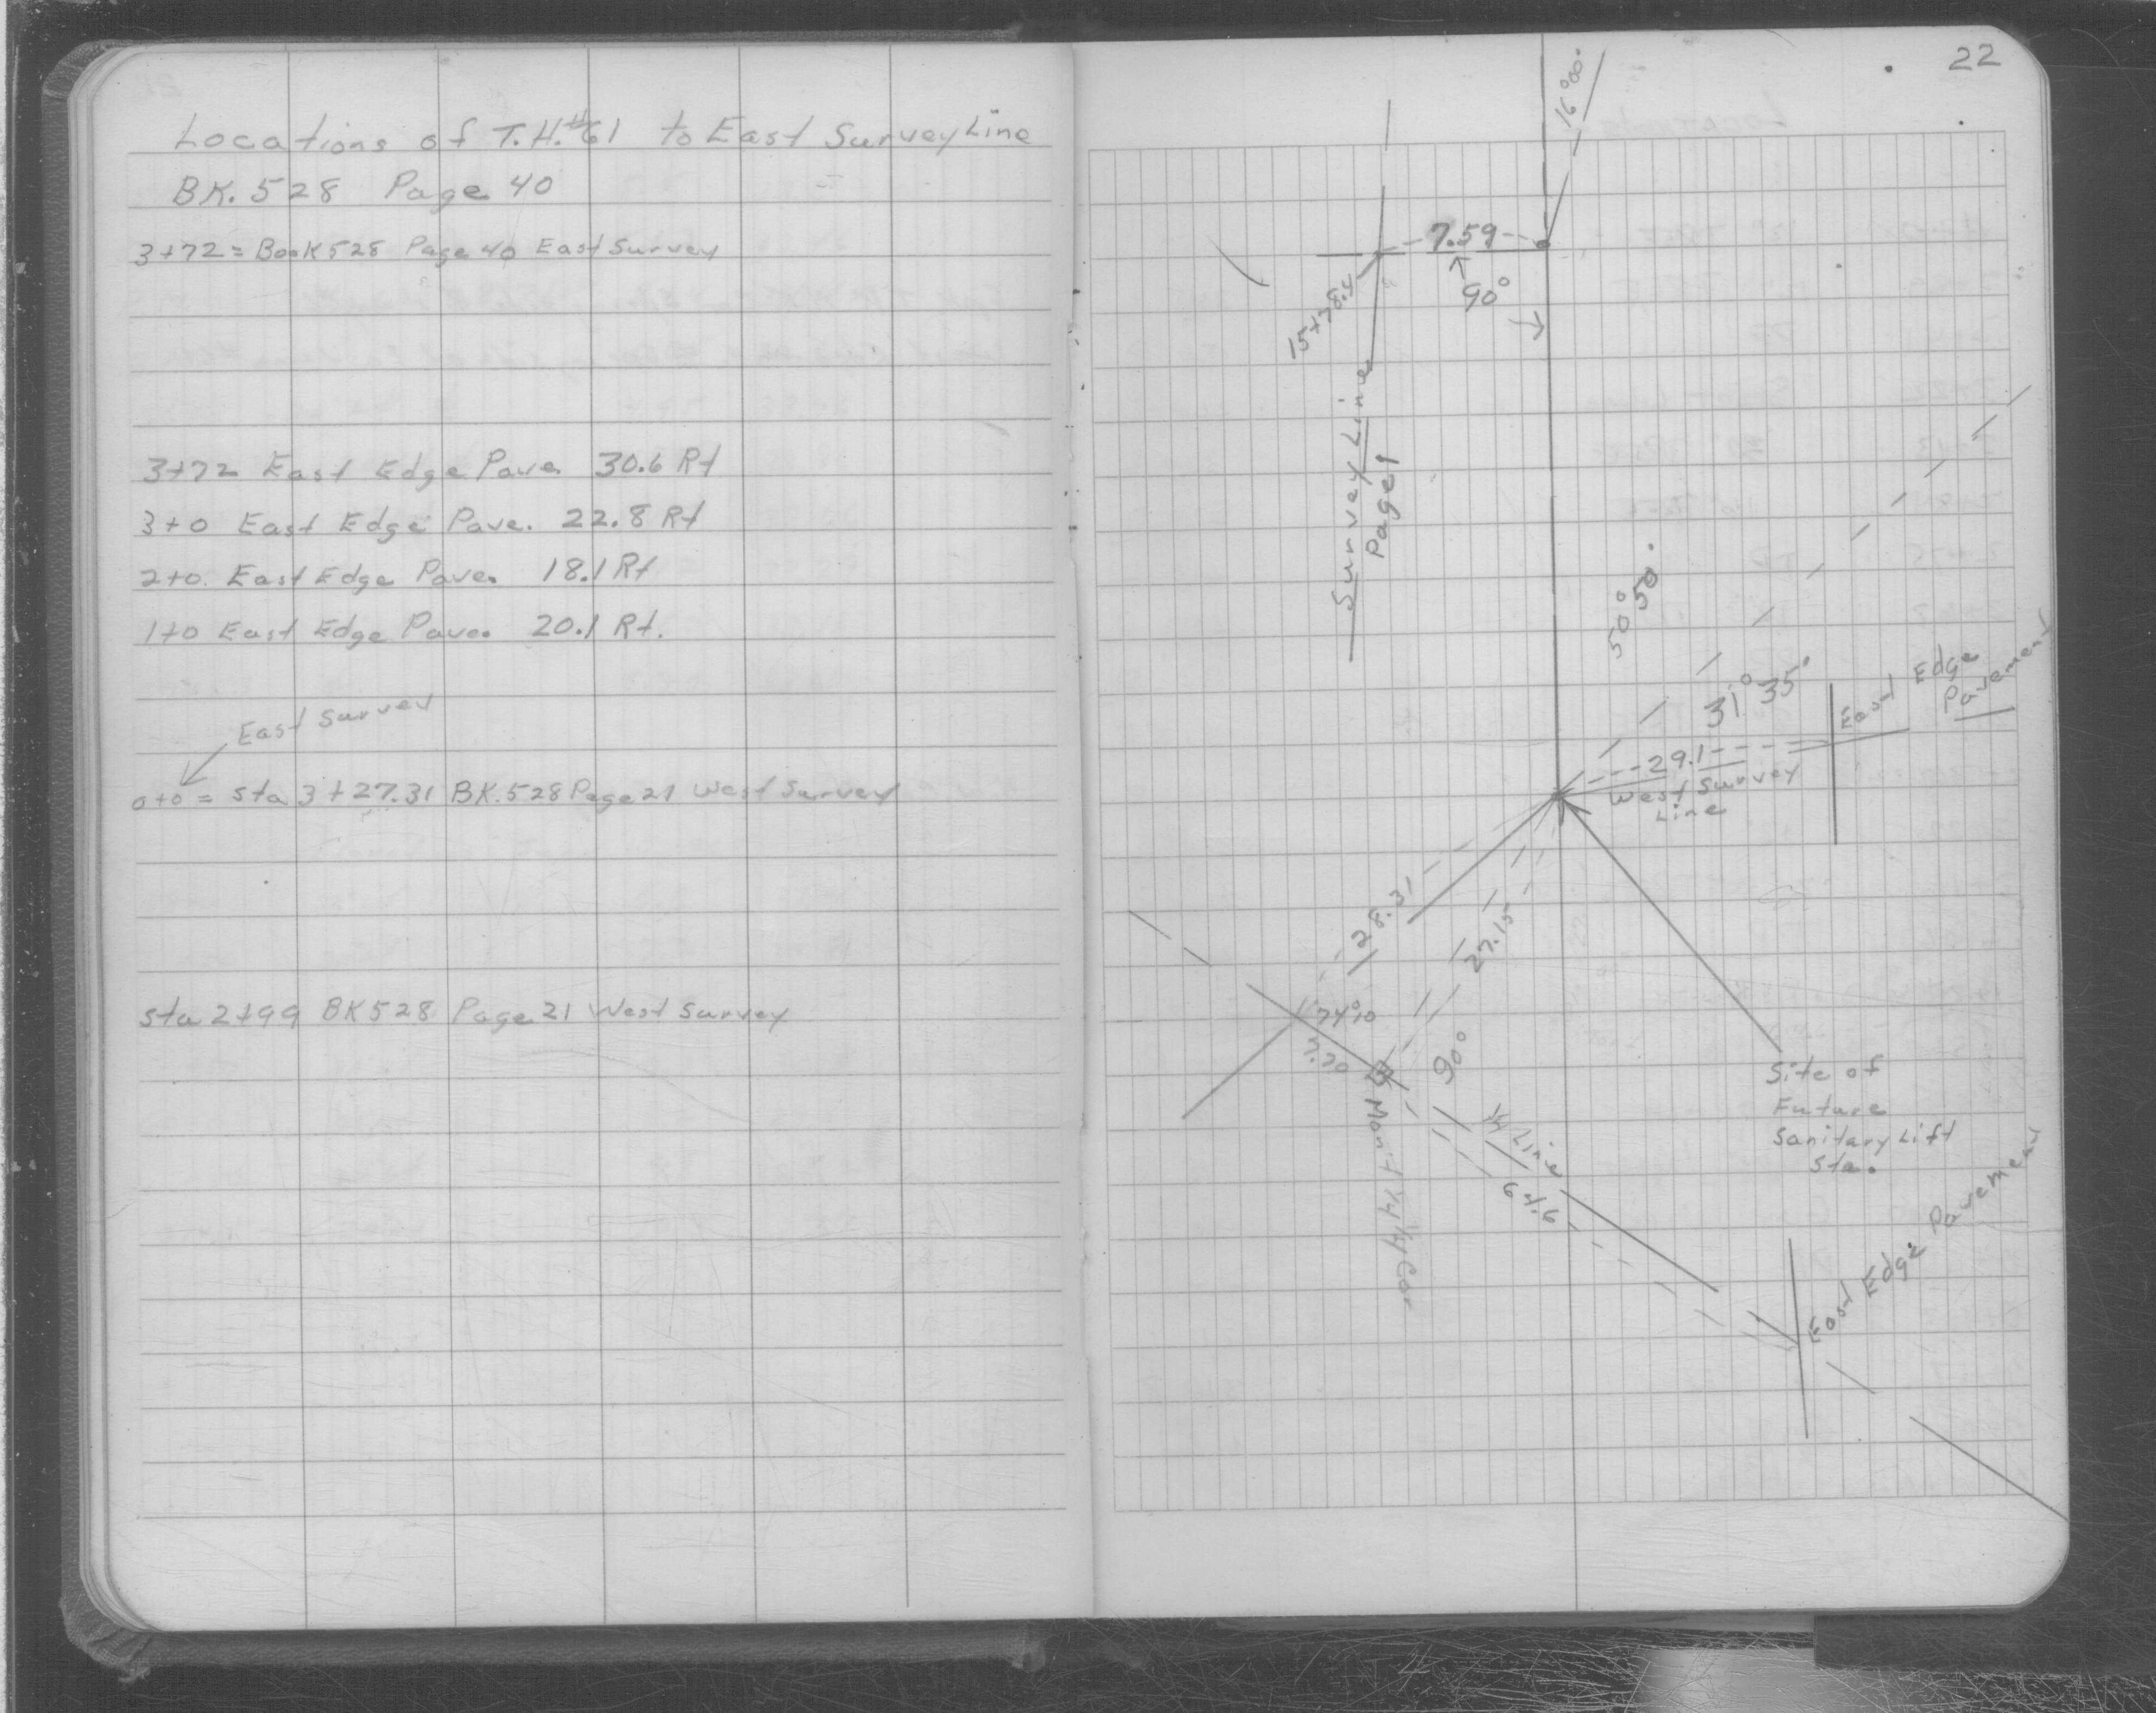 Locations of T.H.#61 to East Survey Line
BK. 528 Page 40
3+72 = Book 528 Page 40 East Survey
3+72 East Edge Pave. 30.6 Rt
3+0 East Edge Pave. 22.8 Rt
2+0. East Edge Pave. 18.1 Rt
1+0 East Edge Pave. 20.1 Rt.
East Survey
0+0 = sta 3+27.31 BK.528 Page 21 West Survey
sta 2+99 BK 528 Page 21 West Survey
22
16°00'
7.59
90°
15+78.4
Survey Line
Page 1
50° 50'
31° 35'
East Edge
Pavement
29.1
West Survey
Line
28.31
27.15
74°10
90°
Mon't 1/4 1/4 Cor
1/4 Line
Site of
Future
Sanitary Lift
Sta.
East Edge Pavement